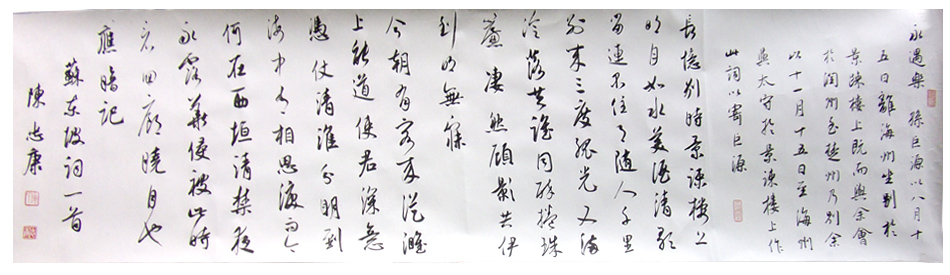 永遇樂 孫巨源以八月十
五日離海州坐別於
景疎樓上既而與余會
於潤州至楚州乃別余
以十一月十五日至海州
與太守於景疎樓上作
此詞以寄巨源
長憶別時景疎樓上
明月如水美酒清歌
留連不住月隨人千里
別來三度孤光又滿
冷落共誰同醉捲珠
簾凄然顧影共伊
到明無寐
今朝有客來從濉
上能道使君深意
憑仗清淮分明到
海中有相思淚而今
何在西垣清禁夜
永露華侵被此時
看回廊曉月也
應暗記
蘇東坡詞一首
陳忠康